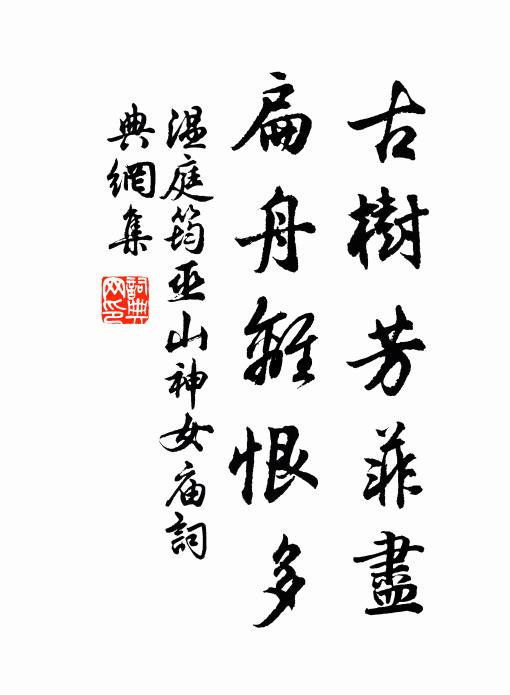 古樹芳菲盡
扁舟離恨多
温庭筠巫山神女庙詞
典網集
詞典
网印